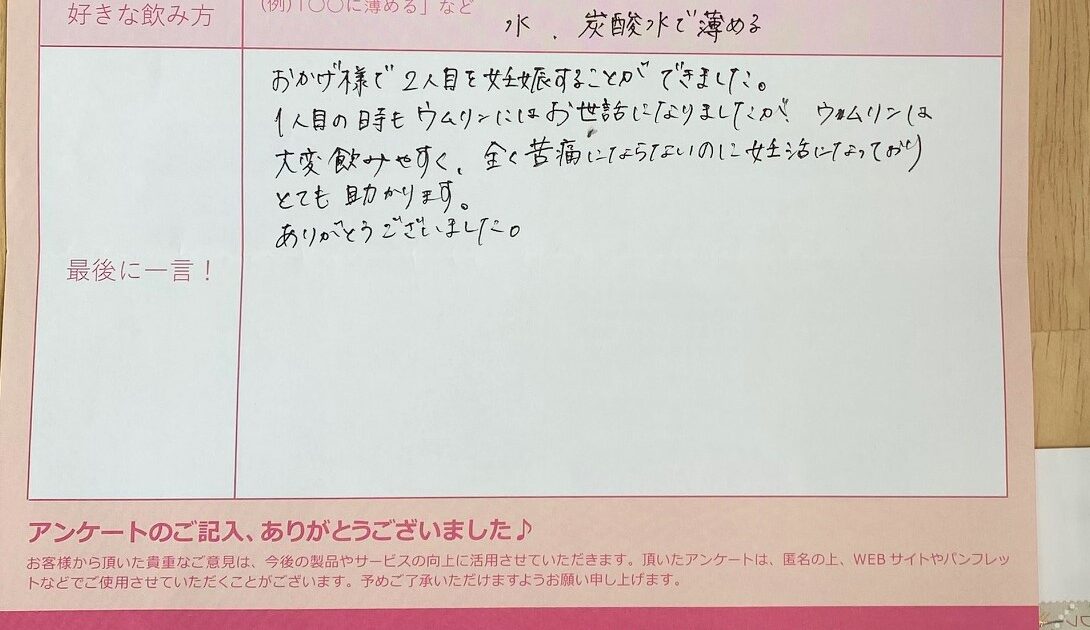 (例)「〇〇に薄める」など
好きな飲み方
水、炭酸水で薄める
おかげ様で2人目を妊娠することができました。
1人目の時もウムリンにはお世話になりましたが、ウムリンは
大変飲みやすく、全く苦痛にならないのに妊活になっており
とても助かります。
ありがとうございました。
最後に一言！
アンケートのご記入、ありがとうございました♪
お客様から頂いた貴重なご意見は、今後の製品やサービスの向上に活用させていただきます。頂いたアンケートは、匿名の上、WEBサイトやパンフレッ
トなどでご使用させていただくことがございます。予めご了承いただけますようお願い申し上げます。